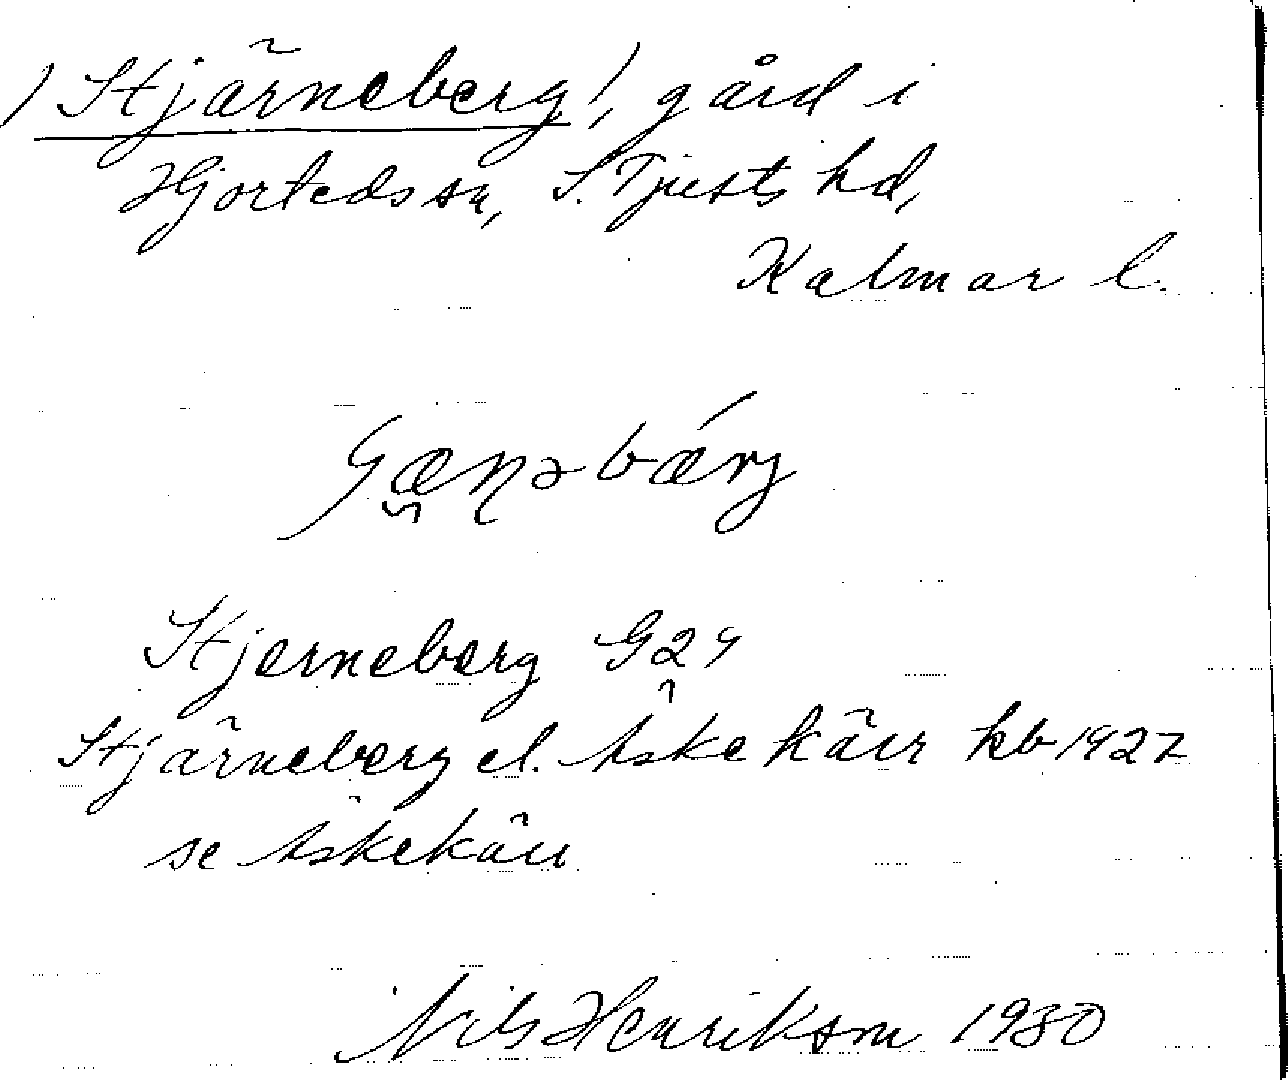 /Stjärneberg/, gård i
Hjorteds sn, S. Tjusts hd,
Kalmar l.
Stjerneberg G 24
Stjärneberg el. Askekärr kb 1927
se Askekärr
Nils Henrikson 1930